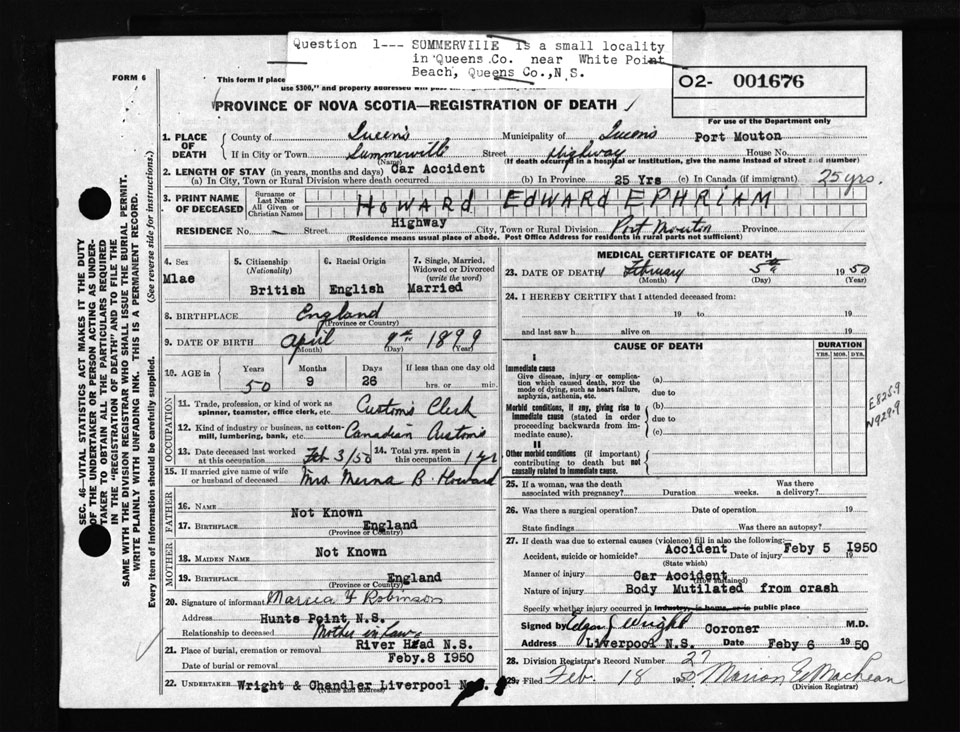 Question 1--- SUMMERVIIIE is a small locality
in Queens Co. near White Point
Beach, Queens Co.,N.S.
FORM 6
This form if place
use $300," and property addressed
O2- 001676
For use of the Department only
PROVINCE OF NOVA SCOTIA—REGISTRATION OF DEATH
1. PLACE OF DEATH
County of Queens Municipality of Queens Port Mouton
If in City or Town Summerville Street Highway House No.
(Name) (If death occurred in a hospital or institution, give the name instead of street and number)
2. LENGTH OF STAY (in years, months and days) Car Accident
(a) In City, Town or Rural Division where death occurred (b) In Province 25 Yrs (c) In Canada (if immigrant) 25 yrs.
3. PRINT NAME OF DECEASED
Surname or Last Name
All Given or Christian Names
HOWARD EDWARD EPHRIAM
RESIDENCE No. Street Highway City, Town or Rural Division Port Mouton Province
(Residence means usual place of abode. Post Office Address for residents in rural parts not sufficient)
4. Sex Mlae
5. Citizenship (Nationality) British
6. Racial Origin English
7. Single, Married, Widowed or Divorced (write the word) Married
8. BIRTHPLACE England
(Province or Country)
9. DATE OF BIRTH April 9th 1899
(Month) (Day) (Year)
10. AGE in Years 50 Months 9 Days 26 If less than one day old hrs. or min.
OCCUPATION
11. Trade, profession, or kind of work as spinner, teamster, office clerk, etc. Customs Clerk
12. Kind of industry or business, as cotton-mill, lumbering, bank, etc. Canadian Customs
13. Date deceased last worked at this occupation Feb 3/50 14. Total yrs. spent in this occupation 1 yr
15. If married give name of wife or husband of deceased Mrs. Merna B. Howard
FATHER
16. Name Not Known
17. Birthplace England
(Province or Country)
MOTHER
18. Maiden Name Not Known
19. Birthplace England
(Province or Country)
20. Signature of informant Robinson
Address Hunts Point N.S.
Relationship to deceased Mother in Law
21. Place of burial, cremation or removal River Head N.S.
Date of burial or removal Feby.8 I950
22. Undertaker Wright & Chandler Liverpool N.S.
(Name and address)
MEDICAL CERTIFICATE OF DEATH
23. DATE OF DEATH February 5th 1950
(Month) (Day) (Year)
24. I HEREBY CERTIFY that I attended deceased from:
19 to 19
and last saw h alive on 19
CAUSE OF DEATH
DURATION
YRS. MOS. DYS.
I
Immediate cause
Give disease, injury or complication which caused death, NOT the mode of dying, such as heart failure, asphyxia, asthenia, etc.
(a)
due to
Morbid conditions, if any, giving rise to immediate cause (stated in order proceeding backwards from immediate cause).
(b)
due to
(c)
II
Other morbid conditions (if important) contributing to death but not causally related to immediate cause.
E825.9
N929.9
25. If a woman, was the death associated with pregnancy? Duration weeks. Was there a delivery?
26. Was there a surgical operation? Date of operation 19
State findings Was there an autopsy?
27. If death was due to external causes (violence) fill in also the following:
Accident, suicide or homicide? Accident Date of injury Feby 5 I950
(State which)
Manner of injury Car Accident
(How sustained)
Nature of injury Body Mutilated from crash
Specify whether injury occurred in industry, in home, or in public place
Signed by Edgar J Wright Coroner M.D.
Address Liverpool N.S. Date Feby 6 1950
28. Division Registrar's Record Number 27
29. Filed Feb. 18 1950 Marion
(Division Registrar)
SEC. 46—VITAL STATISTICS ACT MAKES IT THE DUTY
OF THE UNDERTAKER OR PERSON ACTING AS UNDER-
TAKER TO OBTAIN ALL THE PARTICULARS REQUIRED
IN THE "REGISTRATION OF DEATH" AND TO FILE THE
SAME WITH THE DIVISION REGISTRAR WHO SHALL ISSUE THE BURIAL PERMIT.
WRITE PLAINLY WITH UNFADING INK. THIS IS A PERMANENT RECORD.
Every item of information should be carefully supplied. (See reverse side for instructions.)